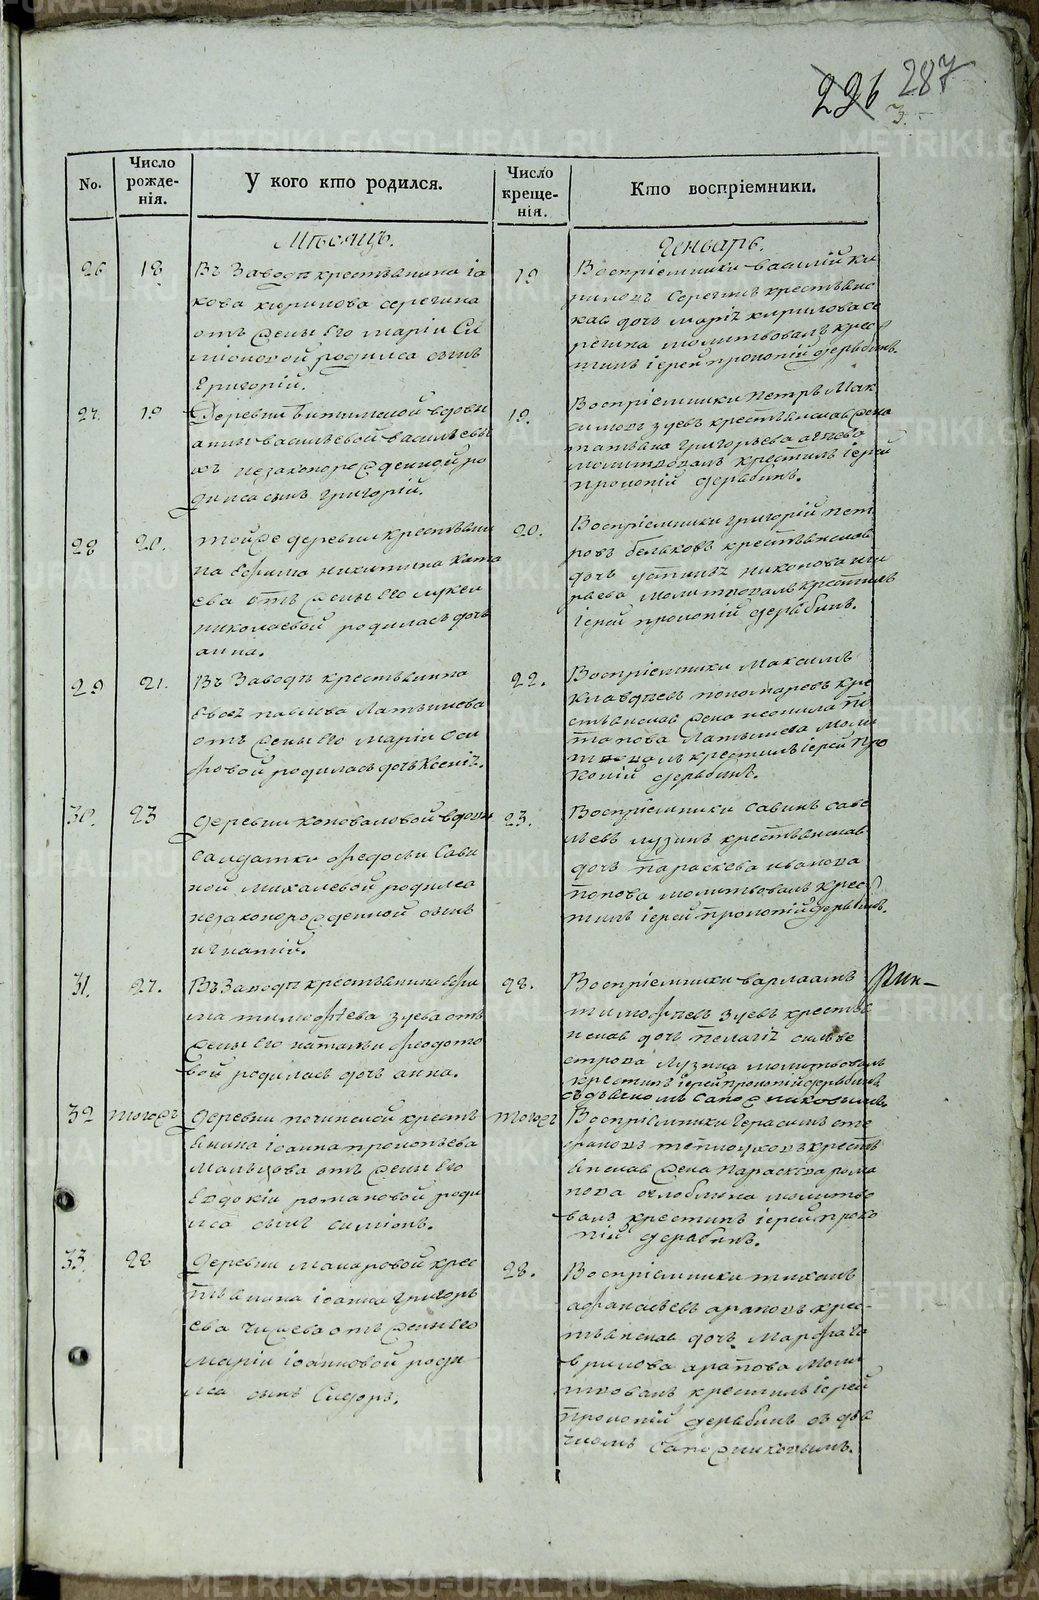 226 287
3.
No.
Число рожде-нія.
У кого кто родился.
Число креще-нія.
Кто воспріемники.
Мѣсяцъ.
Генварь.
26
18
Въ Заводѣ крестьянина Іа
кова Кирилова Серегина
отъ жены его Маріи Си
міоновой родился сынъ
Григорій.
19
Воспріемники Василій Ки
риловъ Серегинъ крестьянс
кая дочь Марія Кирилова Се
регина молитвовалъ крес
тилъ іерей Прокопій Дерябинъ.
27
19
Деревни Битимской вдовы
Анны Васильевой Васильевы
хъ незаконорожденной ро
дился сынъ Григорій.
19.
Воспріемники Петръ Мак
симовъ Зуевъ крестьянская жена
Татьяна Григорьева
молитвовалъ крестилъ іерей
Прокопій Дерябинъ.
28
20.
Тойже деревни крестьяни
на Ефима Никитина Ката
ева отъ жены его Лукеи
Николаевой родилась дочь
Анна.
20.
Воспріемники Григорій Пет
ровъ Бельковъ крестьянская
дочь Устинія Никонова
молитвовалъ крестилъ
іерей Прокопій Дерябинъ.
29
21.
Въ Заводѣ крестьянина
Евсея Павлова Латышева
отъ жены его Маріи Оси
повой родилась дочь Ксенія.
22.
Воспріемники Максимъ
Клавдіевъ Пономаревъ кре
стьянская жена Неонила По
тапова Латышева моли
твовалъ крестилъ іерей Про
копій Дерябинъ.
30.
23
Деревни Коноваловой вдовы
салдатки Федосьи Сави
ной Михалевой родился
незаконорожденной сынъ
Игнатій.
23.
Воспріемники Савинъ Саве
льевъ Лузинъ крестьянская
дочь Параскева Иванова
Попова молитвовалъ крес
тилъ іерей Прокопій Дерябинъ.
31.
27.
Въ Заводѣ крестьянина Ефи
ма Тимофеева Зуева отъ
жены его Натальи Федото
вой родилась дочь Анна.
28.
Воспріемники Варлаамъ
Тимофеевъ Зуевъ крестья
нская дочь Пелагія Сильве
строва Лузина молитвовалъ
крестилъ іерей Прокопій Дерябинъ
съ дьячкомъ Сапожниковымъ.
32
тогожъ
Деревни Починской кресть
янина Іоанна Прокопьева
Мальцова отъ жены его
Евдокіи Романовой роди
лся сынъ Симіонъ.
тогожъ
Воспріемники Герасимъ Сте
фановъ Теплоуховъ кресть
янская жена Параскева Рома
нова Оглоблина молитво
валъ крестилъ іерей Проко
пій Дерябинъ.
33.
28
Деревни Макаровой крес
тьянина Іоанна Григорь
ева Чижева отъ жены его
Маріи Іоанновой роди
лся сынъ Сидоръ.
28.
Воспріемники Тихонъ
Афанасьевъ Араповъ крес-
тьянская дочь Марфа Га
врилова Арапова моли
твовалъ крестилъ іерей
Прокопій Дерябинъ съ дья
чкомъ Сапожниковымъ.
METRIKI.GASO-URAL.RU